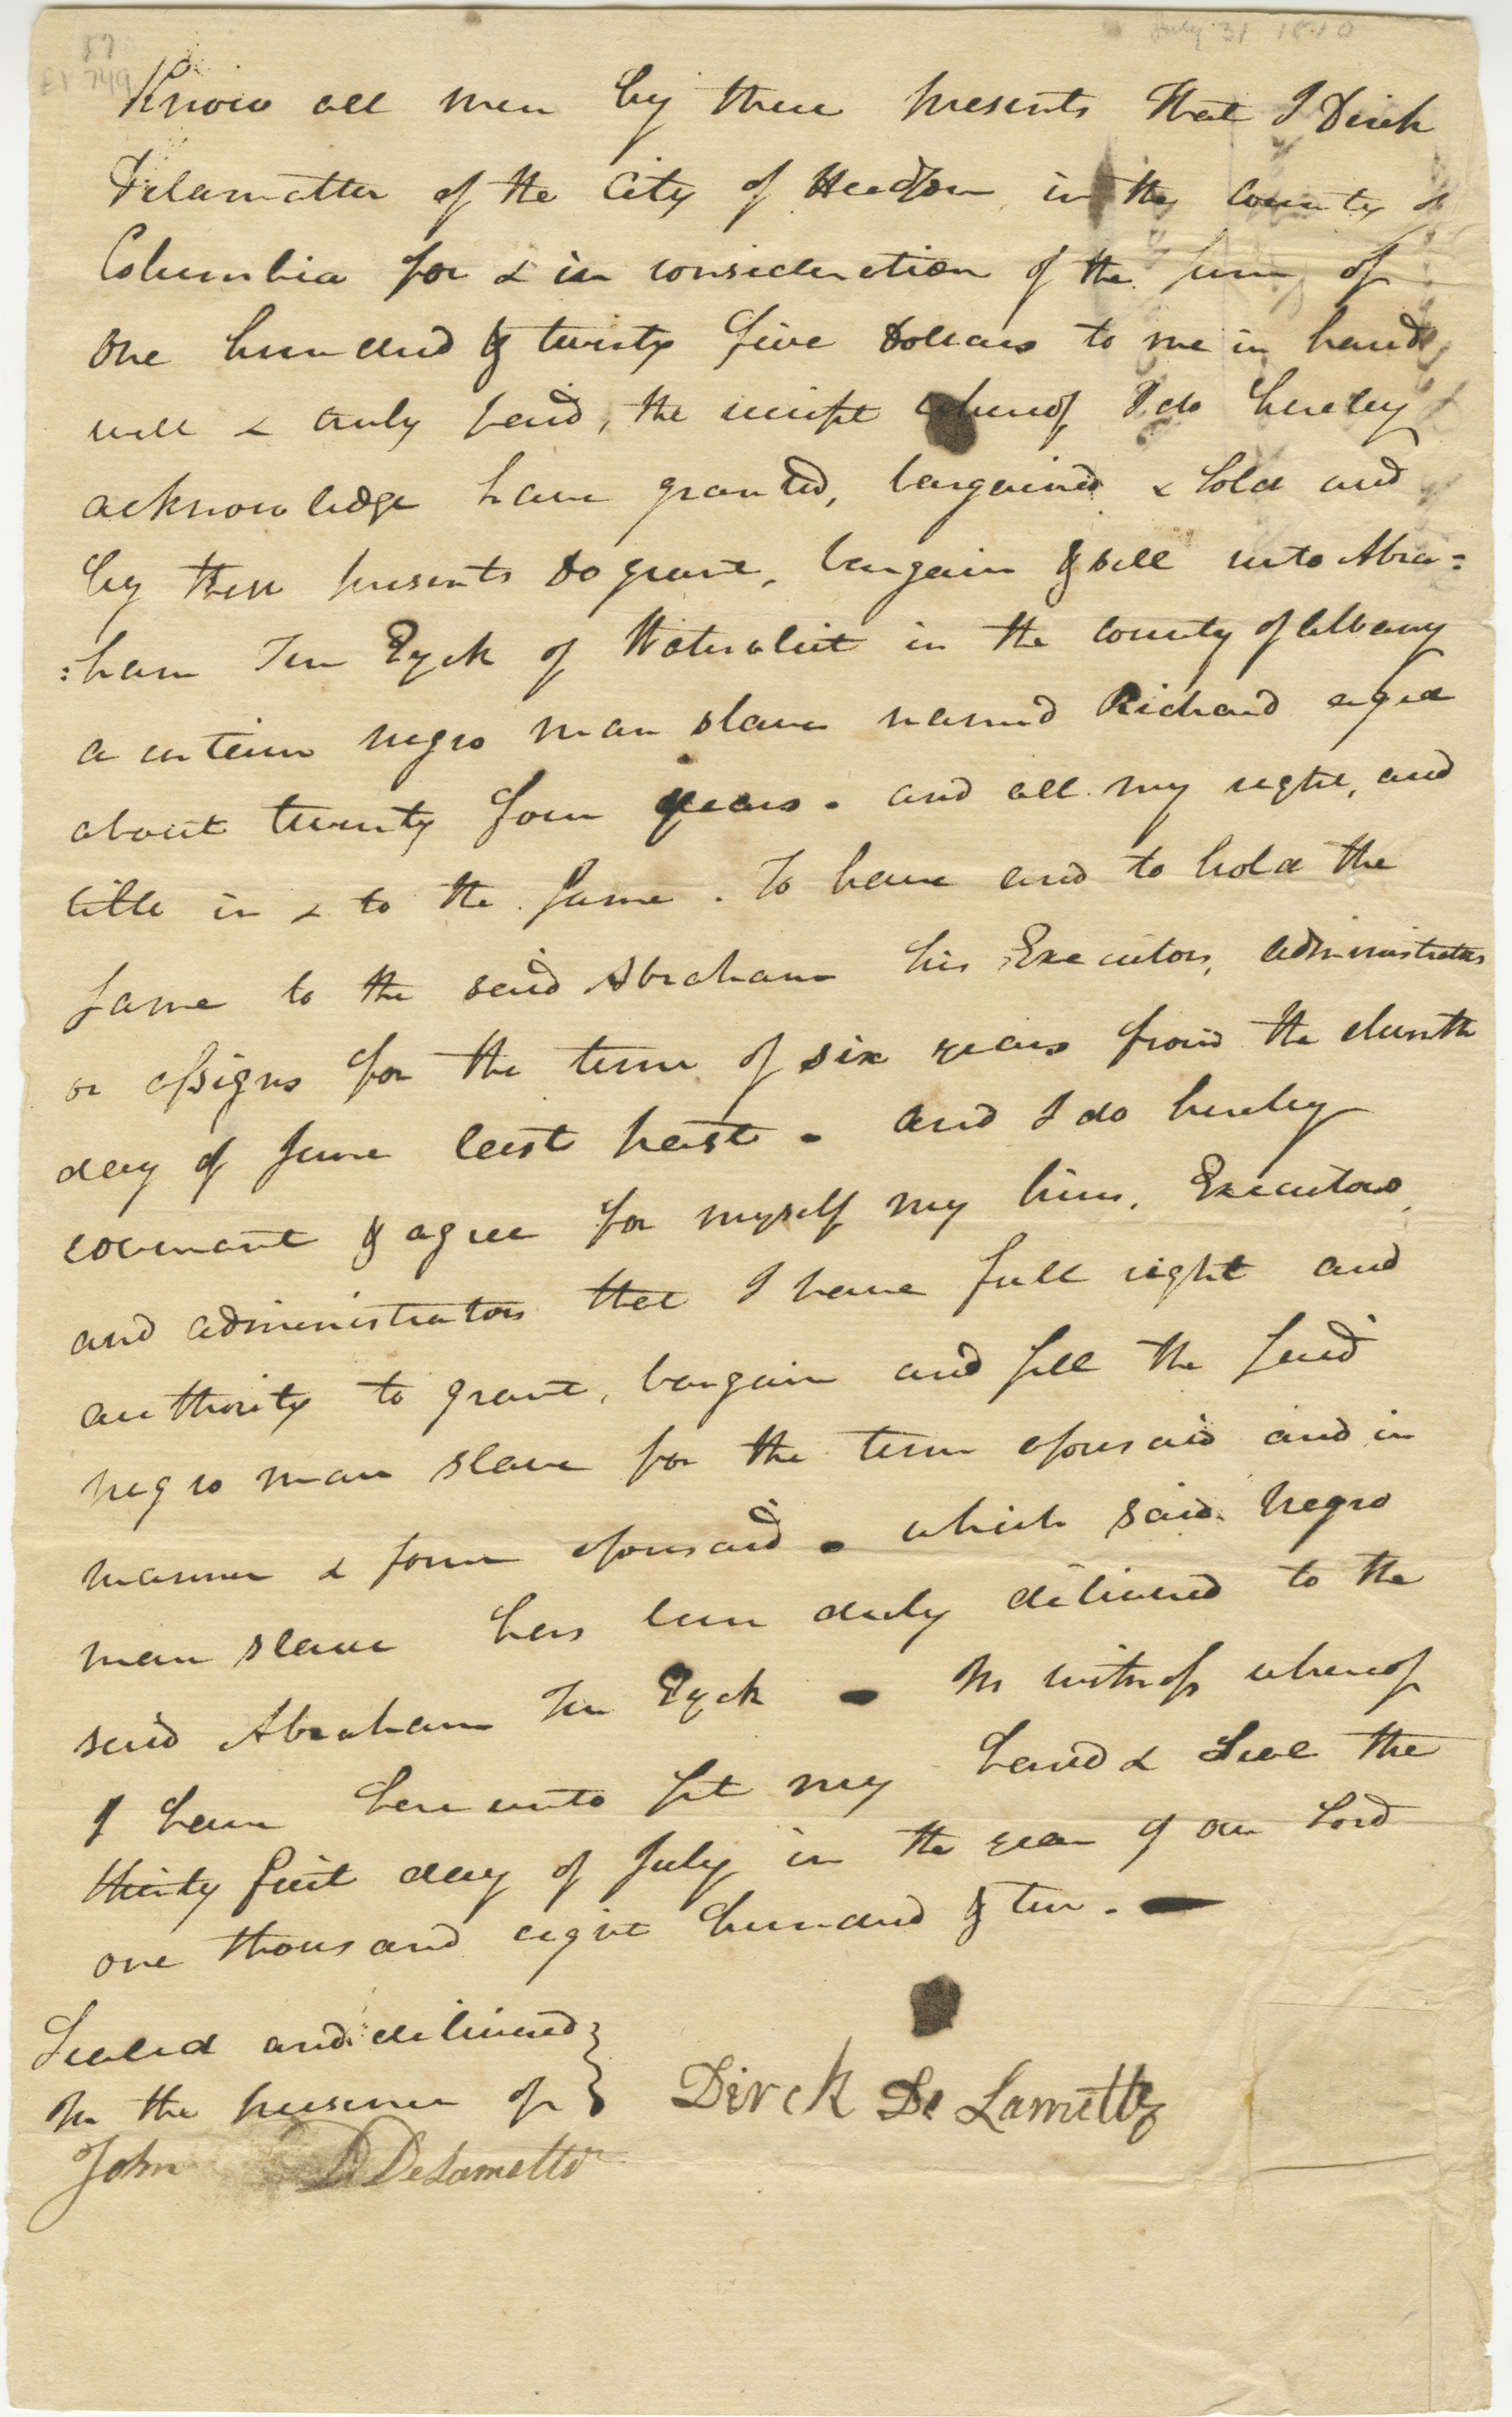 87
EI 749
July 31 1810
Know all men by these presents that I Dirck
Delamatter of the City of Hudson in the county of
Columbia for & in consideration of the sum of
one hundred & twenty five Dollars to me in hand
well & truly paid, the receipt whereof I do hereby
acknowledge have granted, bargained & sold and
by these presents Do grant, bargain & sell unto Abra=
:ham Ten Eyck of Watervliet in the county of Albany
a certain negro man slave named Richard aged
about twenty four years. and all my right, and
title in & to the same. To have and to hold the
same to the said Abraham his Executors, administrators
or assigns for the term of six years from the eleventh
day of June last past. and I do hereby
covenant & agree for myself my heirs, Executors,
and administrators that I have full right and
authority to grant, bargain and sell the said
negro man slave for the term aforesaid and in
manner & form aforesaid. which said negro
man slave has been duly delivered to the
said Abraham Ten Eyck – In witness whereof
I have hereunto set my hand & Seal the
thirty first day of July in the year of our Lord
one thousand eight hundred & ten. –
Sealed and delivered }
In the presence of }
Dirck De Lamettr
John D DeLametter